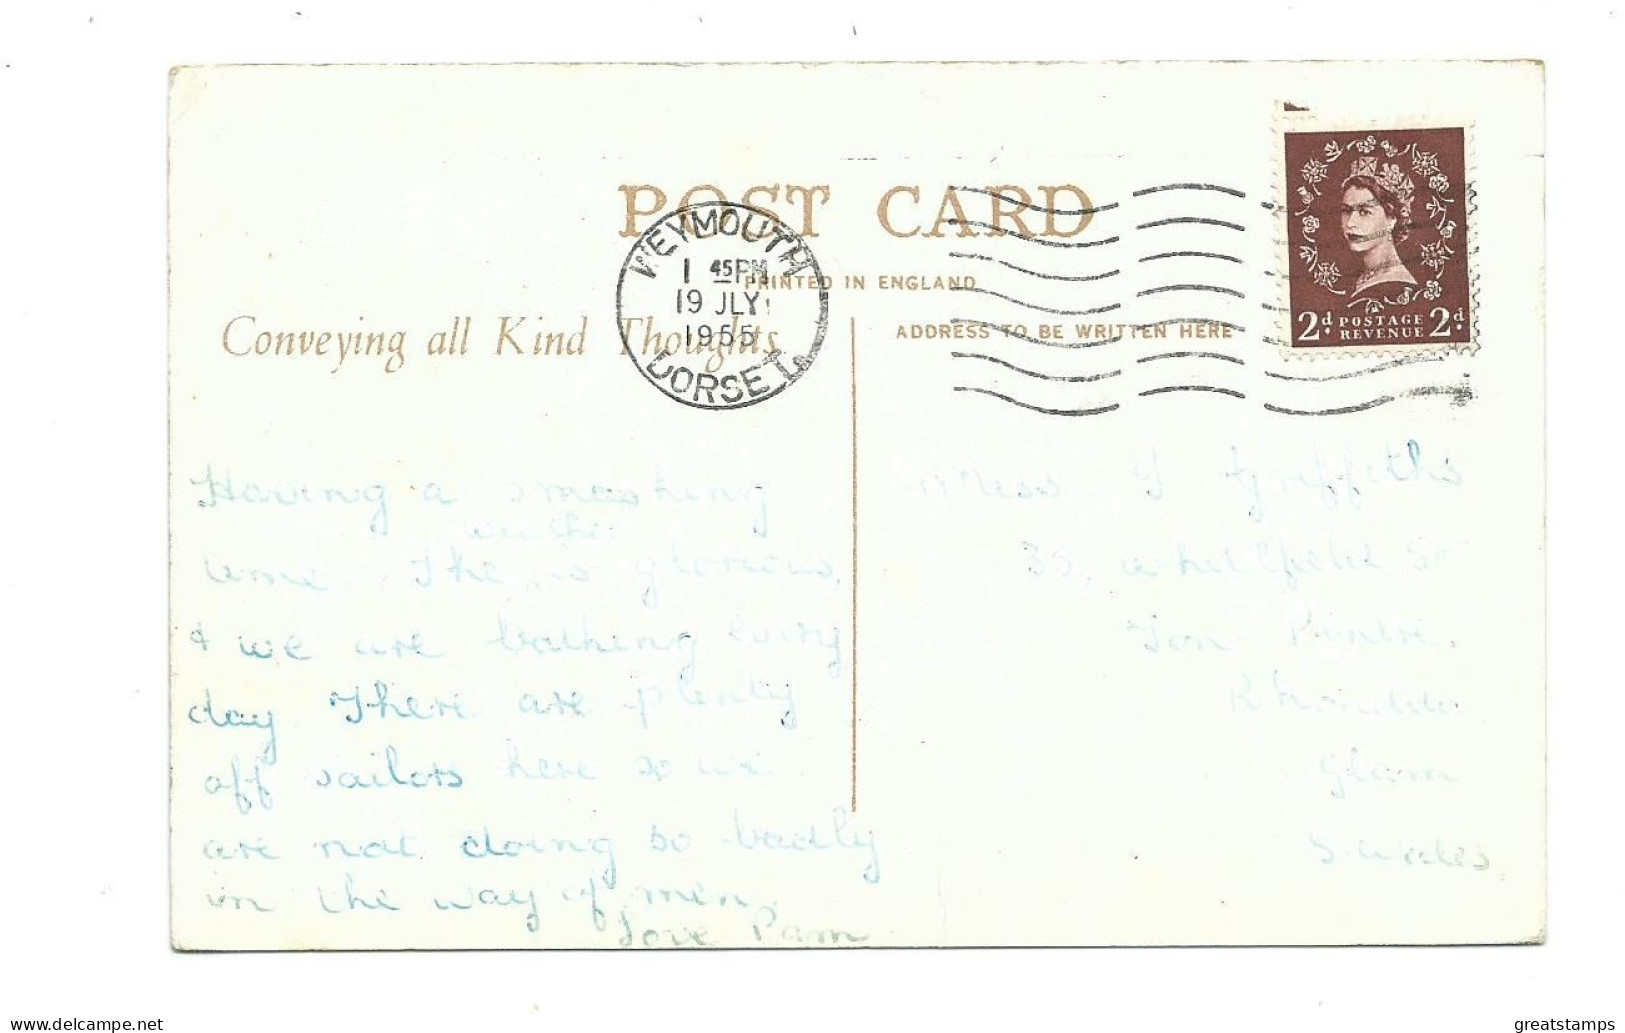 POST CARD
WEYMOUTH
1 45PM
19 JLY
1955
DORSET
PRINTED IN ENGLAND
Conveying all Kind Thoughts
ADDRESS TO BE WRITTEN HERE
2d. POSTAGE REVENUE 2d.
Having a smashing
weather
time The " is glorious
& we are bathing every
day There are plenty
off sailors here so we
are not doing so badly
in the way of men.
Love Pam
Miss J Griffiths
35, Whitefield St
Ton Pentre.
Rhondda
Glam
S. Wales
delcampe.net
greatstamps